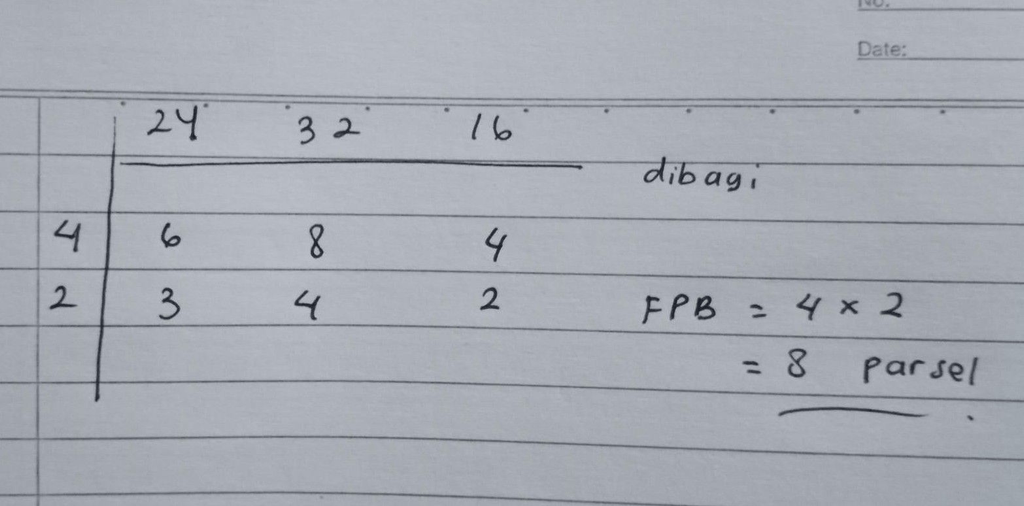 No.
Date:
24 32 16
dibagi
4 6 8 4
2 3 4 2 FPB = 4 x 2
= 8 parsel